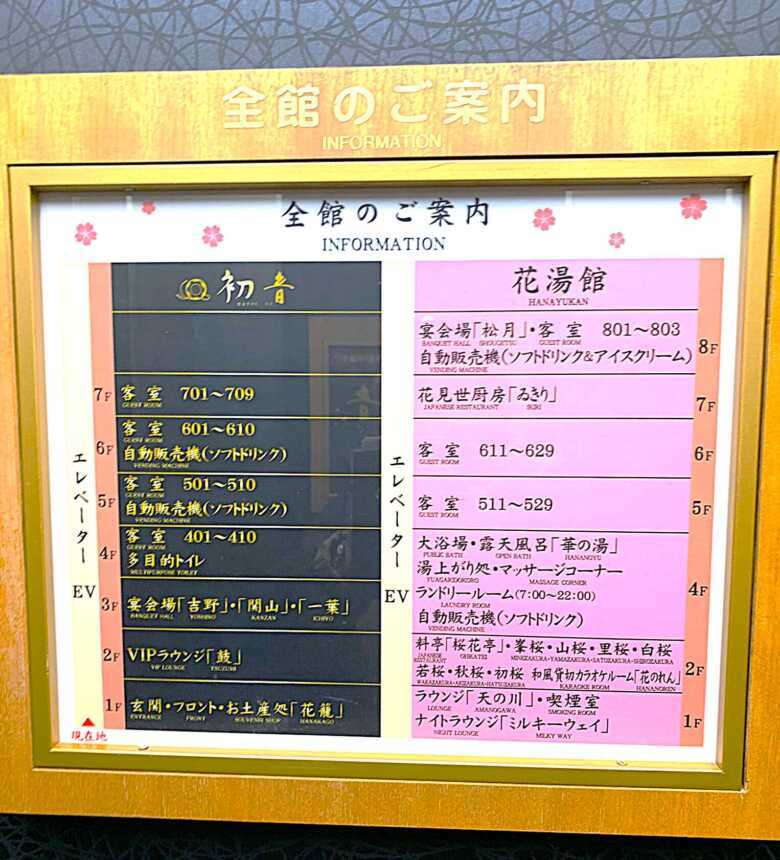 全館のご案内
INFORMATION
全館のご案内
INFORMATION
初音
7F 客室 701～709
GUEST ROOM
6F 客室 601～610
GUEST ROOM
自動販売機(ソフトドリンク)
VENDING MACHINE
5F 客室 501～510
GUEST ROOM
自動販売機(ソフトドリンク)
VENDING MACHINE
4F 客室 401～410
GUEST ROOM
多目的トイレ
MULTIPURPOSE TOILET
3F 宴会場「吉野」・「関山」・「一葉」
BANQUET HALL YOSHINO KANZAN ICHIYO
2F VIPラウンジ「鼓」
VIP LOUNGE TSUZUMI
1F 玄関・フロント・お土産処「花籠」
ENTRANCE FRONT SOUVENIR SHOP HANAKAGO
エレベーター EV
現在地
花湯館
HANAYUKAN
宴会場「松月」・客室 801～803 8F
BANQUET HALL SHOUGETSU GUEST ROOM
自動販売機(ソフトドリンク&アイスクリーム)
VENDING MACHINE
花見世厨房「ゐきり」 7F
JAPANESE RESTAURANT IKIRI
客室 611～629 6F
GUEST ROOM
客室 511～529 5F
GUEST ROOM
大浴場・露天風呂「華の湯」
PUBLIC BATH OPEN BATH HANANOYU
湯上がり処・マッサージコーナー
YUAGARIDOKORO MASSAGE CORNER
ランドリールーム(7:00～22:00) 4F
LAUNDRY ROOM
自動販売機(ソフトドリンク)
VENDING MACHINE
料亭「桜花亭」・峯桜・山桜・里桜・白桜
JAPANESE RESTAURANT OHKATEI MINEZAKURA・YAMAZAKURA・SATOZAKURA・SHIROZAKURA
若桜・秋桜・初桜 和風貸切カラオケルーム「花のれん」 2F
WAKAZAKURA・AKIZAKURA・HATSUZAKURA KARAOKE ROOM HANANOREN
ラウンジ「天の川」・喫煙室
LOUNGE AMANOGAWA SMOKING ROOM
ナイトラウンジ「ミルキーウェイ」 1F
NIGHT LOUNGE MILKY WAY
エレベーター EV